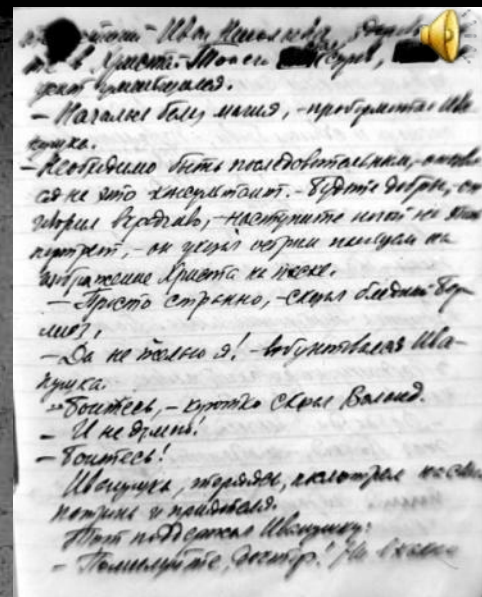 Иван Николаевич,
в Христа.
ухмыльнулся.
– Начались белые магия, – пробормотал Ива-
нушка.
– Необходимо быть последовательным, – отозвал-
ся на это консультант. – Будьте добры, – он го-
ворил вкрадчиво, – наступите ногой на этот
портрет, – он указал острым пальцем на
изображение Христа на песке.
– Просто странно, – сказал бледный Бер-
лиоз.
– Да не желаю я! – взбунтовался Ива-
нушка.
– Боитесь, – коротко сказал Воланд.
– И не думаю!
– Боитесь!
Иванушка, теряясь, посмотрел на
патрона и приятеля.
Тот поддержал Иванушку:
– Помилуйте, доктор! Ни в коем